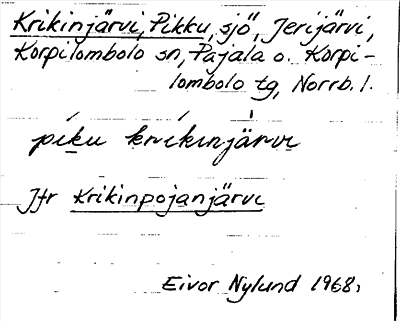 Krikinjärvi, Pikku, sjö, Jerijärvi,
Korpilombolo sn, Pajala o. Korpi-
lombolo tg, Norrb. l.
píku kríkinjä̀rvi
Jfr Krikinpojanjärvi
Eivor Nylund 1968.